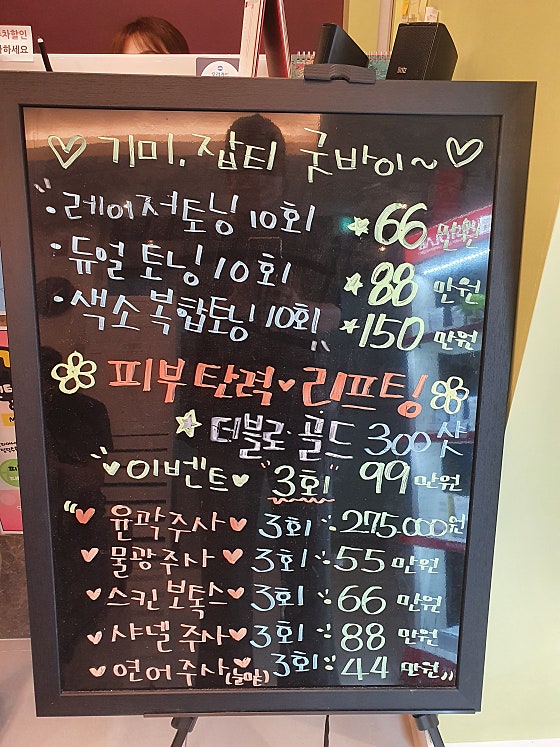 ♡기미.잡티 굿바이~♡
·레이저토닝 10회 ☆66만원
·듀얼토닝 10회 ☆88만원
·색소복합토닝 10회 ☆150만원
피부탄력♥리프팅
☆더블로 골드 300샷
♥이벤트♥ "3회" 99만원
♥윤곽주사♥ 3회 : 275.000원
♥물광주사♥ 3회 : 55만원
♥스킨보톡스♥ 3회 : 66만원
♥샤넬주사♥ 3회 : 88만원
♥연어주사♥ 3회 : 44만원